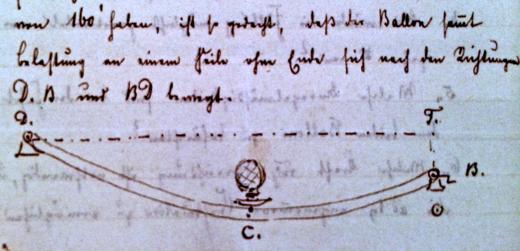 von 160' haben, ist so gedacht, daß der Ballon samt
belastung an einem Seile ohne Ende sich nach den Richtungen
D. B und BD bewegt.
D. F.
B.
C.